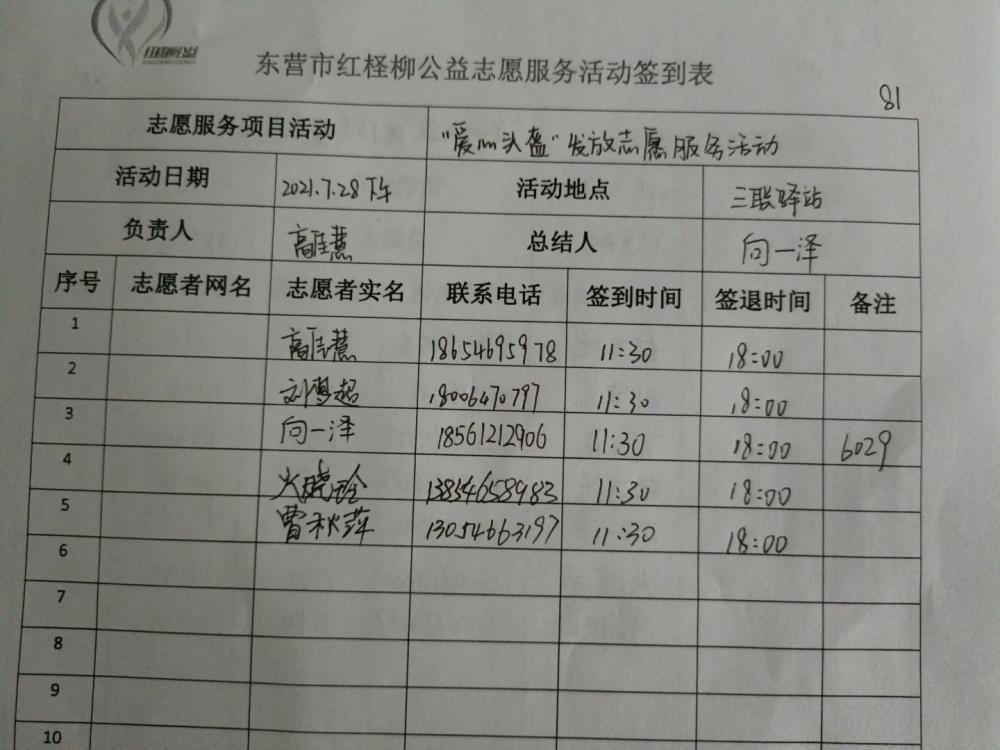 红柽柳公益
东营市红柽柳公益志愿服务活动签到表
81
志愿服务项目活动 "爱心头盔"发放志愿服务活动
活动日期 2021.7.28下午 活动地点 三联驿站
负责人 高佳慧 总结人 向一泽
序号 志愿者网名 志愿者实名 联系电话 签到时间 签退时间 备注
1 高佳慧 18654695978 11:30 18:00
2 刘梦超 18006470797 11:30 18:00
3 向一泽 18561212906 11:30 18:00 6029
4 火晓玲 13854658983 11:30 18:00
5 曹秋萍 13054663197 11:30 18:00
6
7
8
9
10